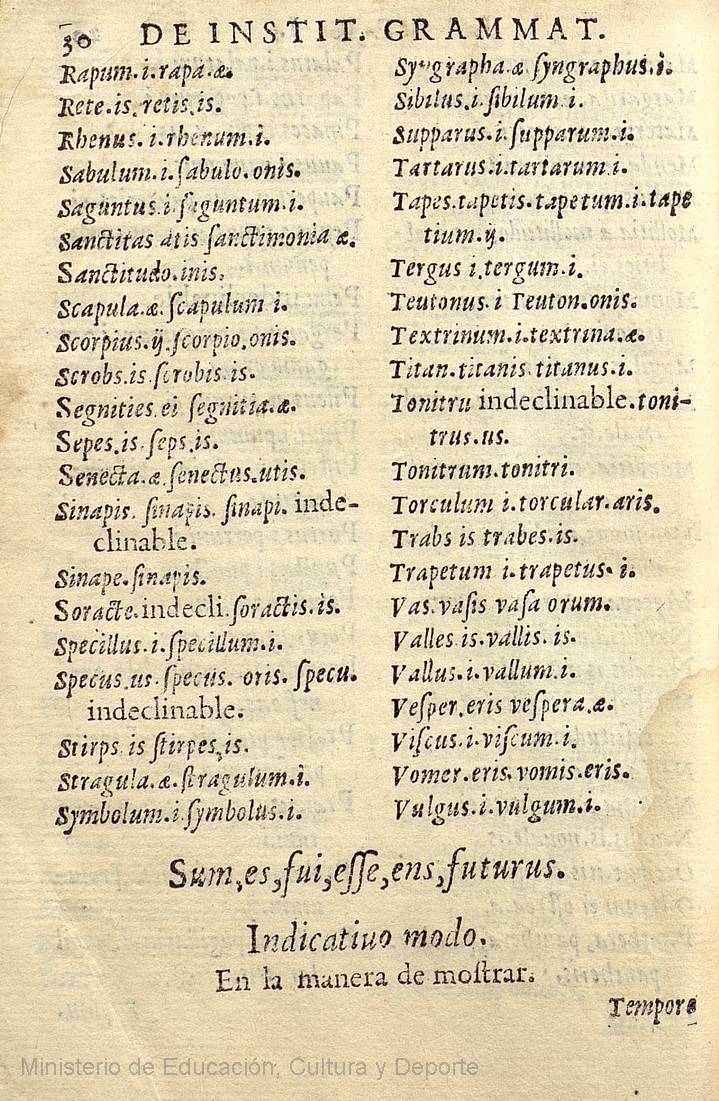 30 DE INSTIT. GRAMMAT.
Rapum.i.rapa.æ.
Rete.is.retis.is.
Rhenus.i.rhenum.i.
Sabulum.i.ſabulo.onis.
Saguntus.i.ſaguntum.i.
Sanctitas atis ſanctimonia æ.
Sanctitudo.inis.
Scapula.æ.ſcapulum i.
Scorpius.ij.ſcorpio.onis.
Scrobs.is.ſcrobis.is.
Segnities.ei ſegnitia.æ.
Sepes.is.ſeps.is.
Senecta.æ.ſenectus.utis.
Sinapis. ſinapis. ſinapi. inde-
clinable.
Sinape.ſinapis.
Soracte.indecli.ſoractis.is.
Specillus.i.ſpecillum.i.
Specus.us.ſpecus. oris. ſpecu.
indeclinable.
Stirps is ſtirpes.is.
Stragula.æ.ſtragulum.i.
Symbolum.i.ſymbolus.i.
Syngrapha.æ ſyngraphus.i.
Sibilus.i.ſibilum.i.
Supparus.i.ſupparum.i.
Tartarus.i.tartarum.i.
Tapes.tapetis.tapetum.i.tape
tium.ij.
Tergus i.tergum.i.
Teutonus.i Teuton.onis.
Textrinum.i.textrina.æ.
Titan.titanis.titanus.i.
Tonitru indeclinable.toni-
trus.us.
Tonitrum.tonitri.
Torculum i.torcular.aris.
Trabs is trabes.is.
Trapetum i.trapetus.i.
Vas.vaſis vaſa orum.
Valles is.vallis. is.
Vallus.i.vallum.i.
Veſper.eris veſpera.æ.
Viſcus.i.viſcum.i.
Vomer.eris.vomis.eris.
Vulgus.i.vulgum.i.
Sum,es,fui,eſſe,ens,futurus.
Indicatiuo modo.
En la manera de moſtrar.
Tempore
Ministerio de Educación, Cultura y Deporte